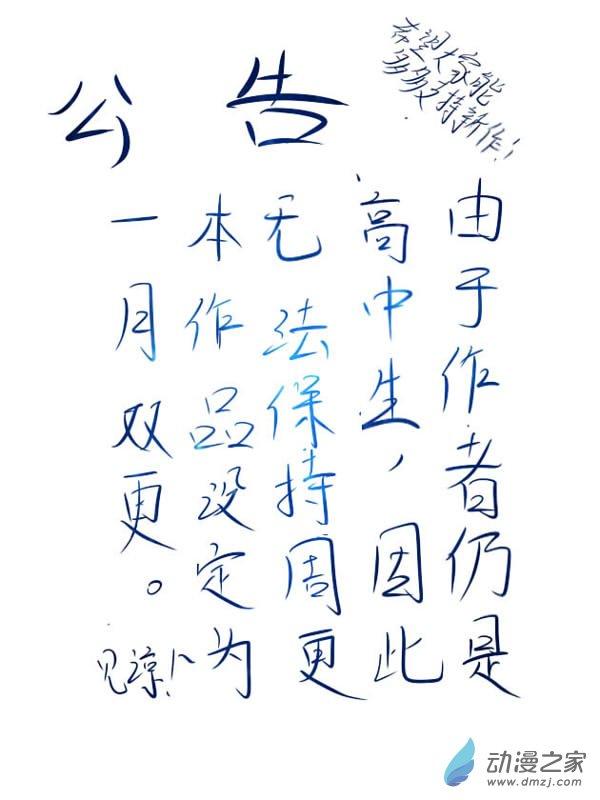 公告
希望大家能
多多支持新作!
由于作者仍是
高中生,因此
无法保持周更
本作品设定为
一月双更。
见谅!
动漫之家
www.dmzj.com